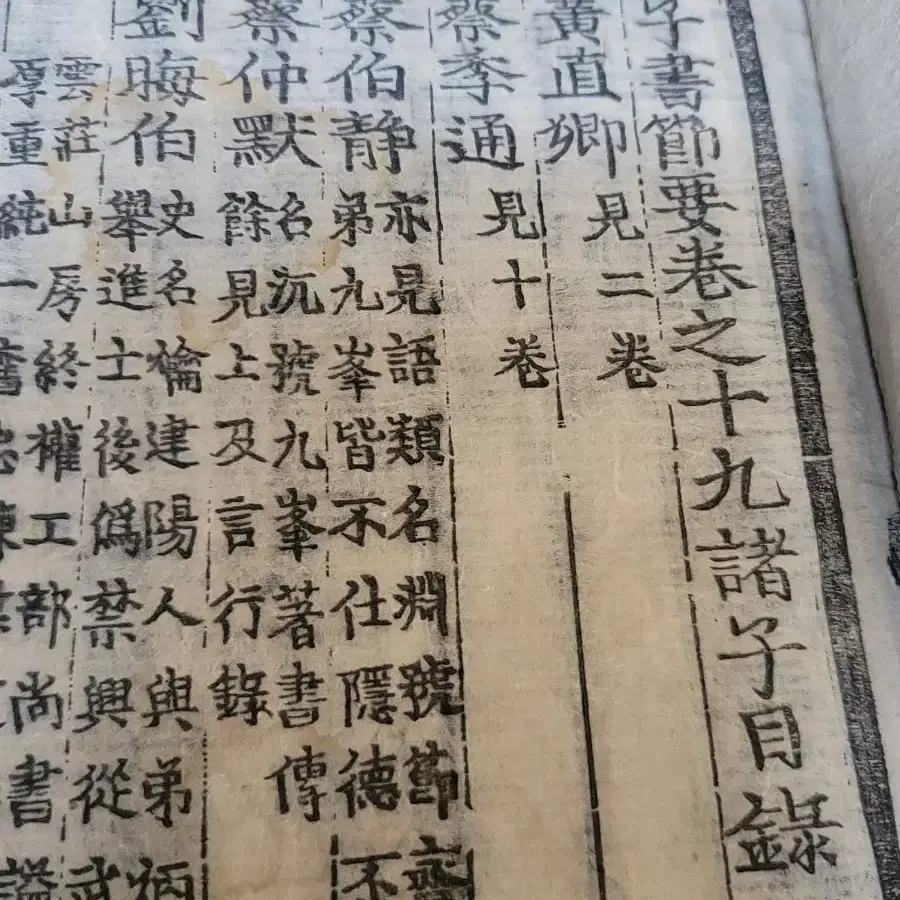 子書節要卷之十九諸子目錄
黃直卿見二卷
蔡季通見十卷
蔡伯靜
亦見語類名淵號節齋
弟九峯皆不仕隱德不
蔡仲默
名沉號九峯著書傳
餘見上及言行錄
劉晦伯
史名爚建陽人與弟炳
舉進士後僞禁興從武
雲莊山房終權工部尚書謚
厚重純一